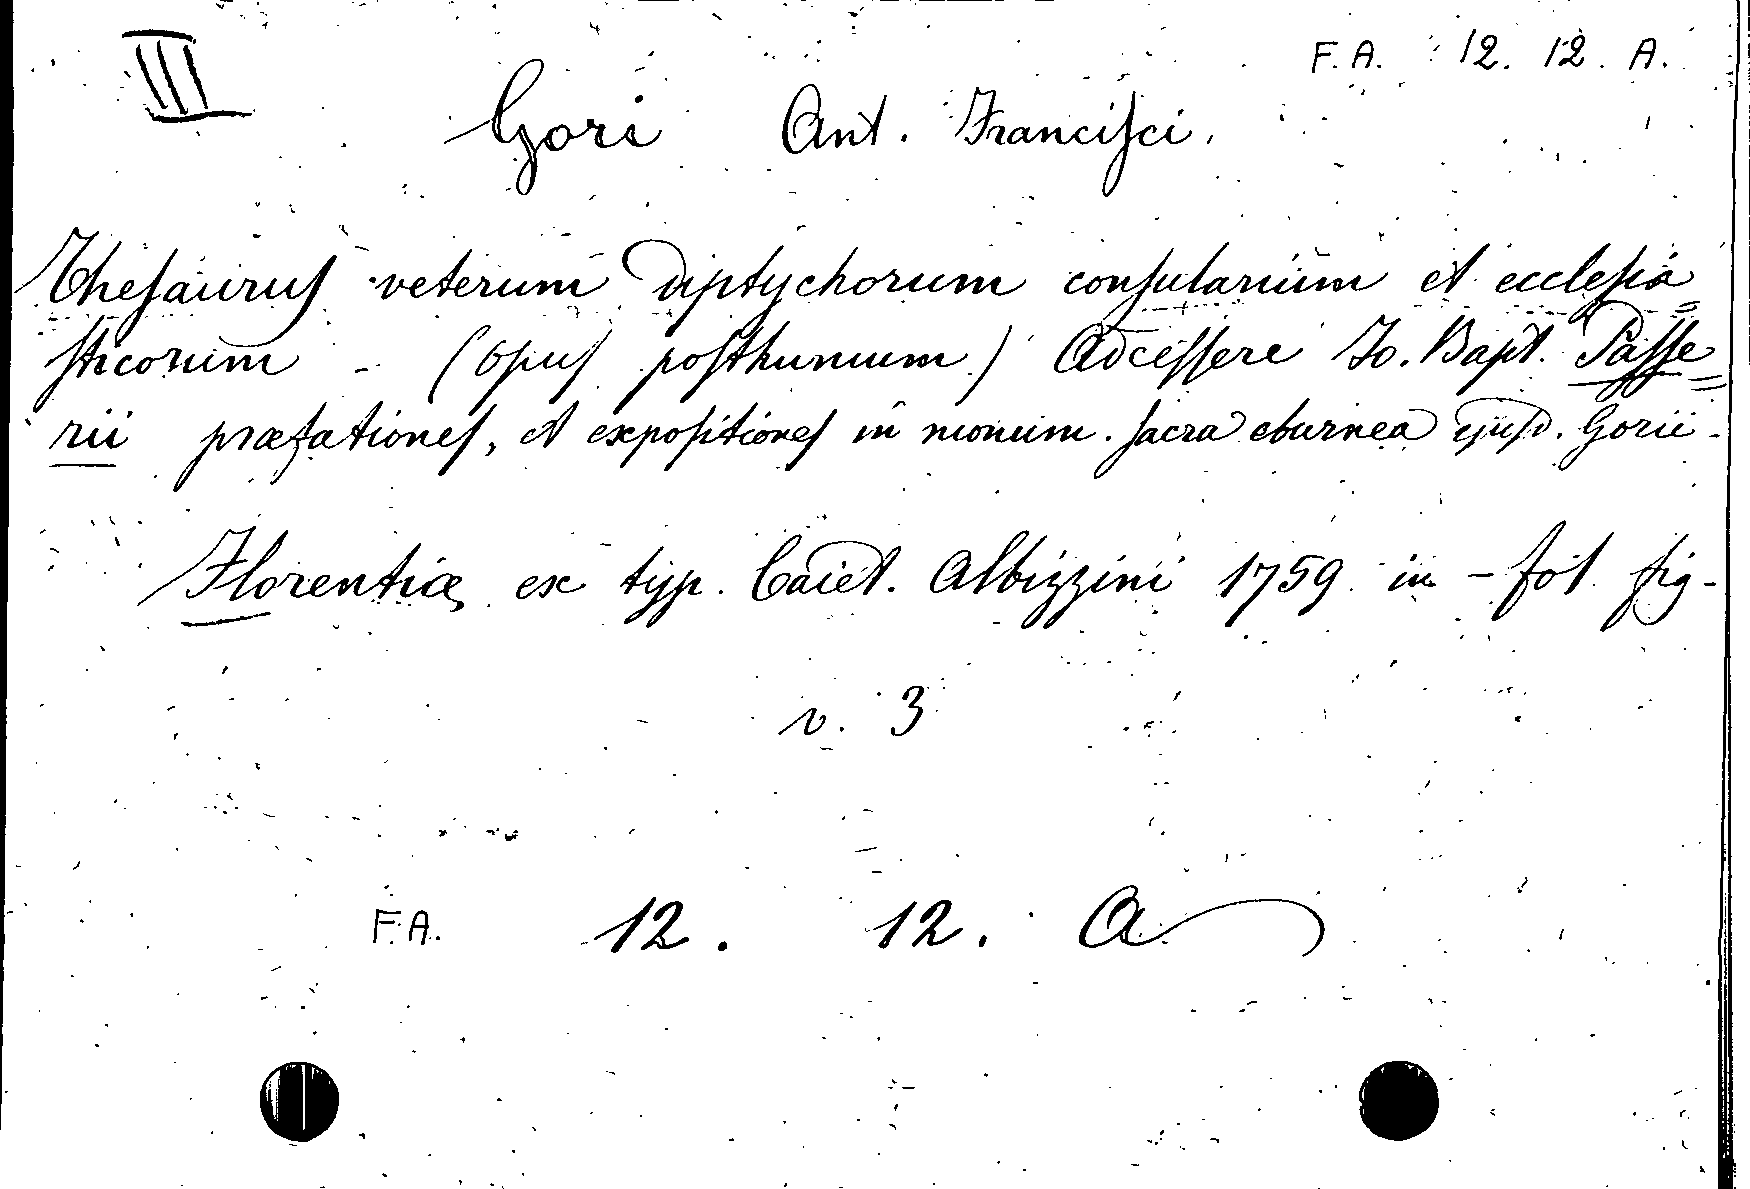 III
F. A. 12. 12. A.
Gori Ant. Francisci.
Thesaurus veterum Diptychorum consularium et ecclesia=
sticorum - (Opus posthumum) Adcessere Jo. Bapt. Passe=
rii præfationes, et expositiones in monum. sacra eburnea ejusd. Gorii -
Florentiæ ex typ. Caiet. Albizzini 1759 in - fol. fig -
v. 3
F. A. 12. 12. A